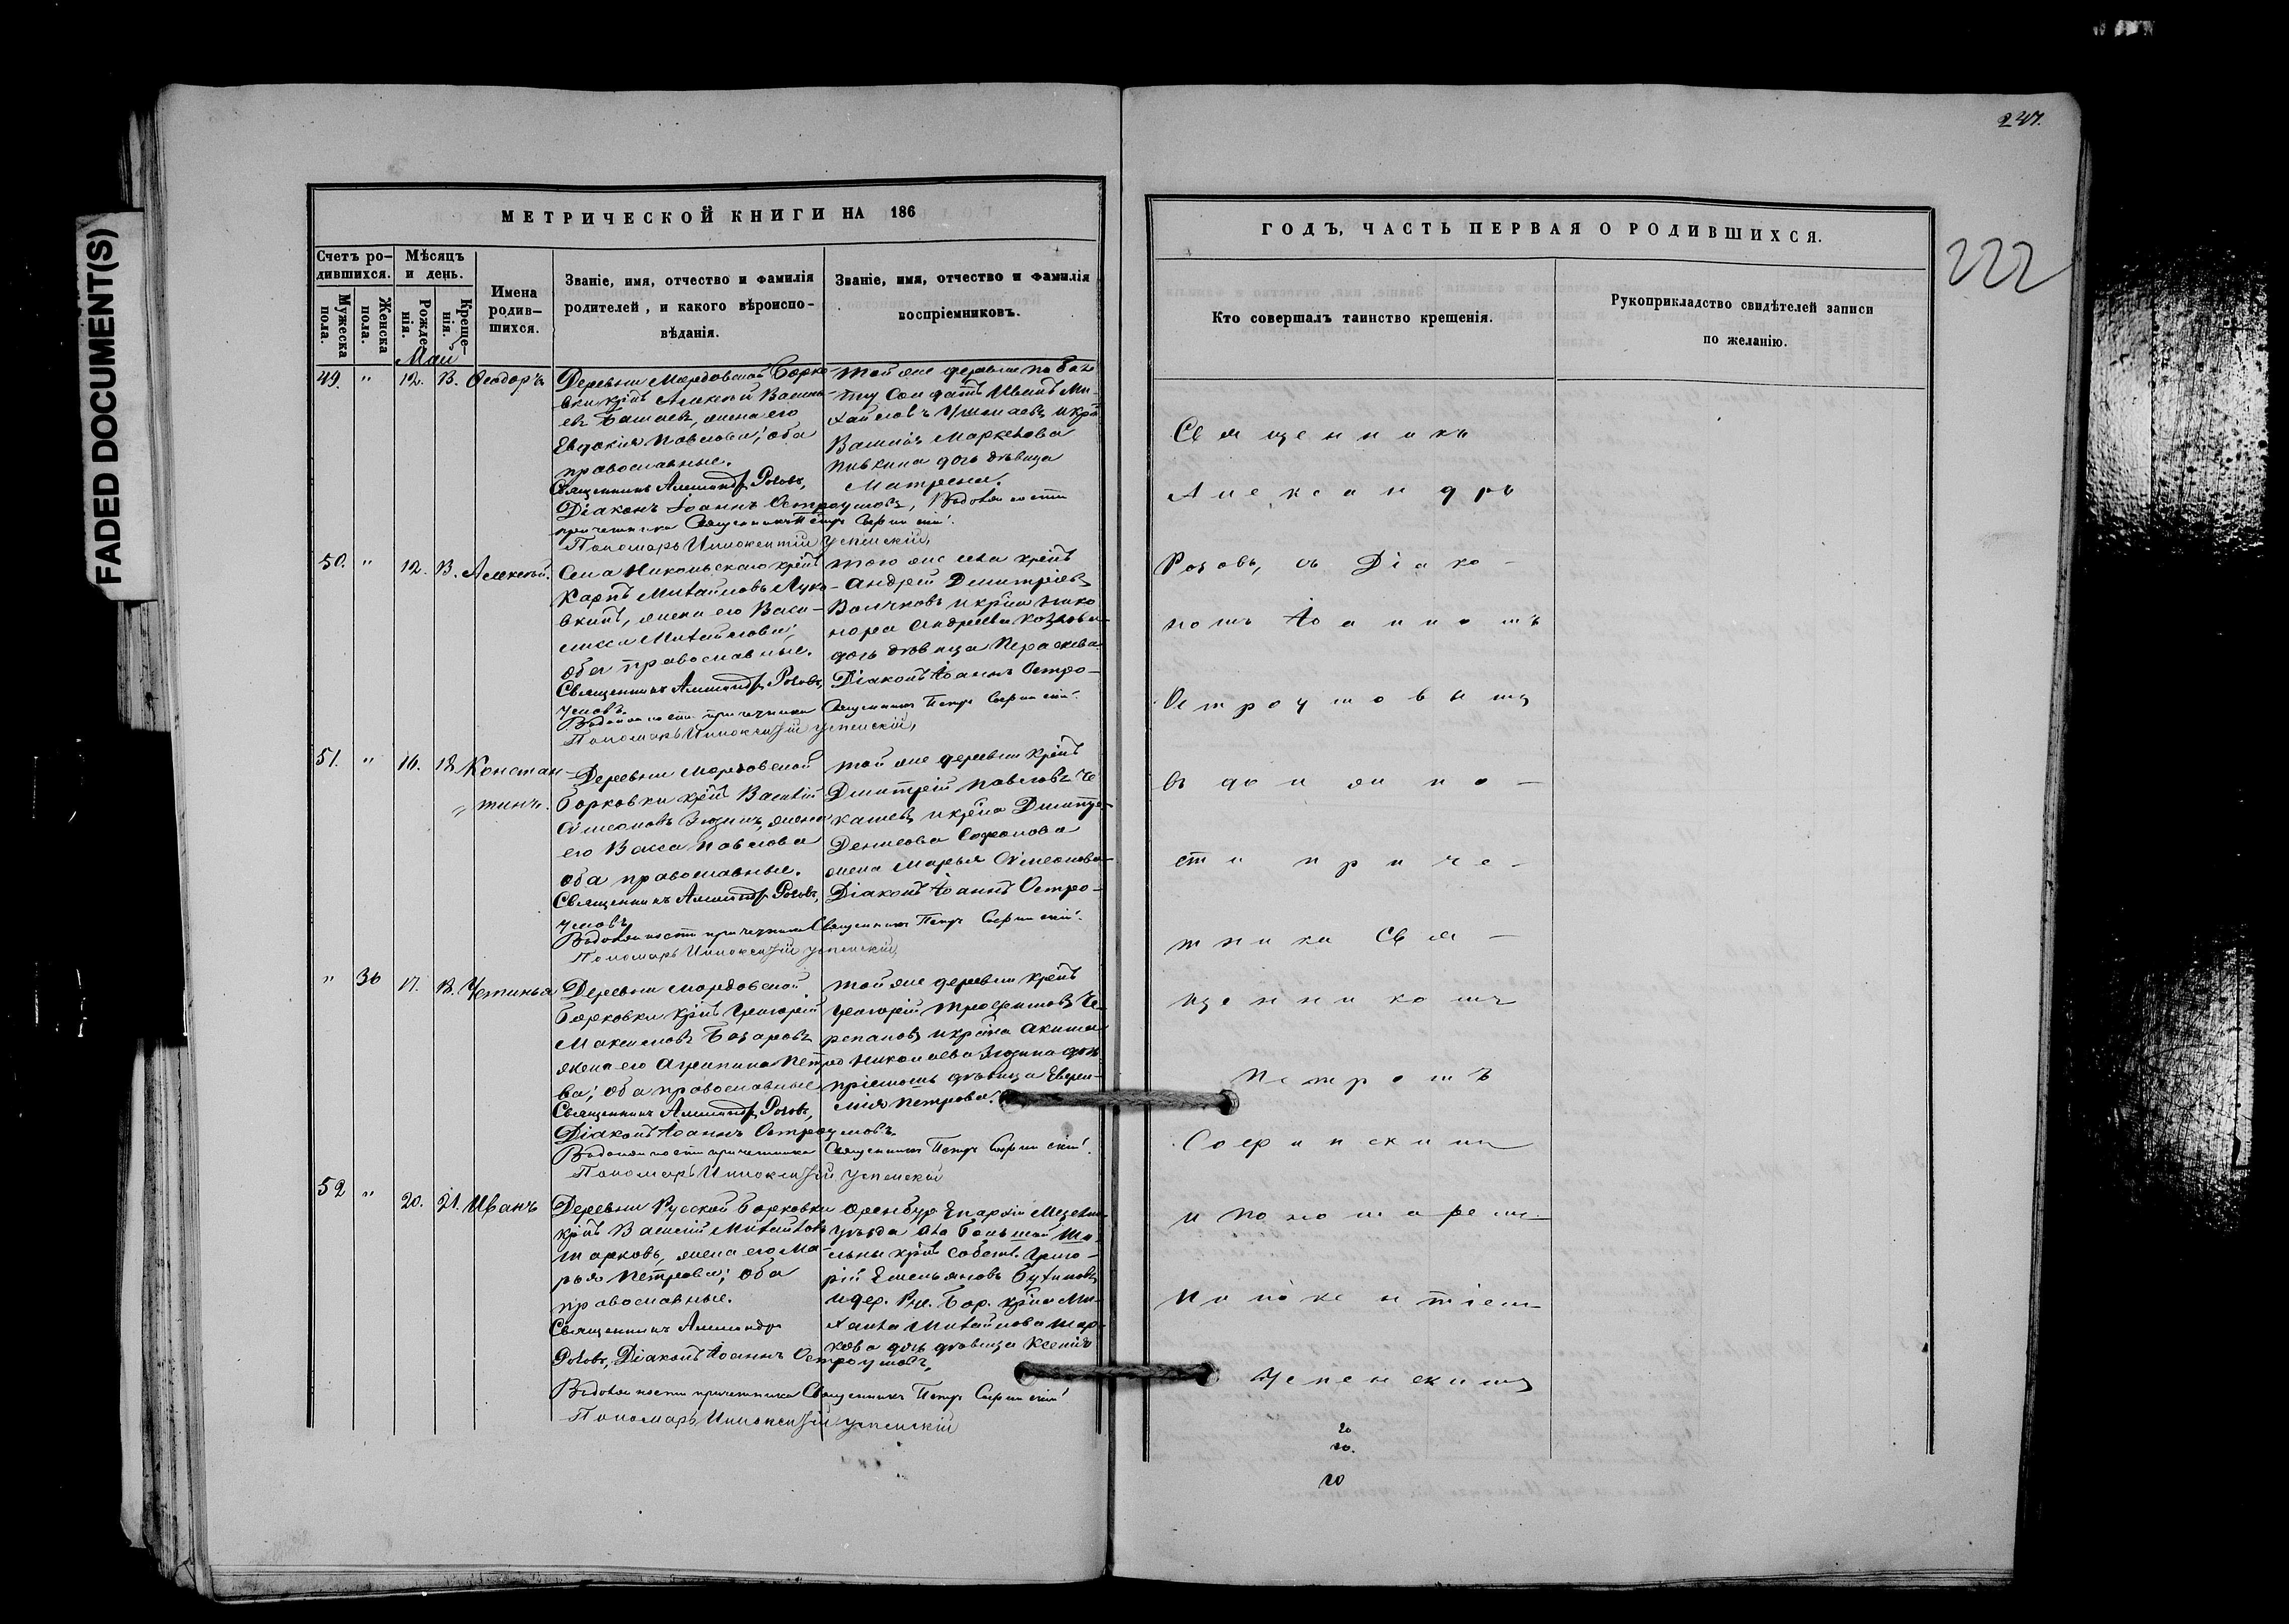 FADED DOCUMENT(S)
247.
222
МЕТРИЧЕСКОЙ КНИГИ НА 186
Счетъ ро-
дившихся.
Мужеска
пола.
Женска
пола.
Мѣсяцъ
и день.
Рожде-
нія.
Креще-
нія.
Имена
родив-
шихся.
Званіе, имя, отчество и фамилія
родителей, и какого вѣроиспо-
вѣданія.
Званіе, имя, отчество и фамилія
воспріемниковъ.
Май
49. " 12. 13. Ѳеодоръ
Деревни Мордовской Борко
вки крнъ Алексѣй Василь
евъ жена его
Евдокія Павлова; оба
православные.
Священникъ Александръ Роговъ,
Діаконъ Іоаннъ Остроумовъ, Въ должности
причетника Священникъ Петръ
Пономарь Иннокентій Успенскій,
той же деревни по биле
ту Солдатъ Иванъ Ми-
хайловъ и кр
Василія
дочь дѣвица
Матрена.
50. " 12. 13. Алексѣй.
Села Никольскаго крнъ
Карпъ Михайловъ
жена его Васи-
лисса Михайлова;
оба православные.
Священникъ Александръ Роговъ,
умовъ.
Въ должности причетника Священникъ Петръ
Пономарь Иннокентій Успенскій,
того же села крнъ
Андрей Димитріевъ
Волчковъ и крна Нико
нора Андреева Козлова
дочь дѣвица Параскева.
Діаконъ Іоаннъ Остро-
51. " 16. 18. Констан-
тинъ.
Деревни Мордовской
Борковки крнъ Василій
Сѵмеоновъ Зюзинъ, жена
его Васса Павлова
оба православные.
Священникъ Александръ Роговъ,
умовъ
Въ должности причетника Священникъ Петръ
Пономарь Иннокентій Успенскій
той же деревни крнъ
Димитрій Павловъ Че
кашевъ и крна Димитрія
Денисова Софронова
жена Марья Сѵмеонова
Діаконъ Іоаннъ Остро-
" 36 17. 18. Устинья
Деревни Мордовской
Борковки крнъ Григорій
Максимовъ
жена его Агрипина Петро
ва; оба православные
Священникъ Александръ Роговъ,
Діаконъ Іоаннъ Остроумовъ.
Въ должности причетника Священникъ Петръ
Пономарь Иннокентій Успенскій
той же деревни крнъ
Григорій Трофимовъ Че
репановъ и крна Акима
Николаева Зюзина дочь
дѣвица
Петрова.
52 " 20. 21. Иванъ
Деревни Русской Борковки
крнъ Василій Михайловъ
Марковъ, жена его Ма-
рья Петрова; оба
православные.
Священникъ Александръ
Роговъ, Діаконъ Іоаннъ Остроумовъ,
Въ должности причетника Священникъ Петръ
Пономарь Иннокентій Успенскій
Оренбур Епархіи
уѣзда
крнъ собств. Григо-
рій Емельяновъ
и дер. Рус. Бор. крна Ми-
хаила Михайлова Мар-
кова дочь дѣвица Ксенія
ГОДЪ, ЧАСТЬ ПЕРВАЯ О РОДИВШИХСЯ.
Кто совершалъ таинство крещенія.
Рукоприкладство свидѣтелей записи
по желанію.
Священникъ
Александръ
Роговъ, съ Діако-
номъ Іоанномъ
Остроумовымъ
въ должно-
сти приче-
тника Свя-
щенникомъ
Петромъ
и пономаремъ
Иннокентіемъ
Успенскимъ